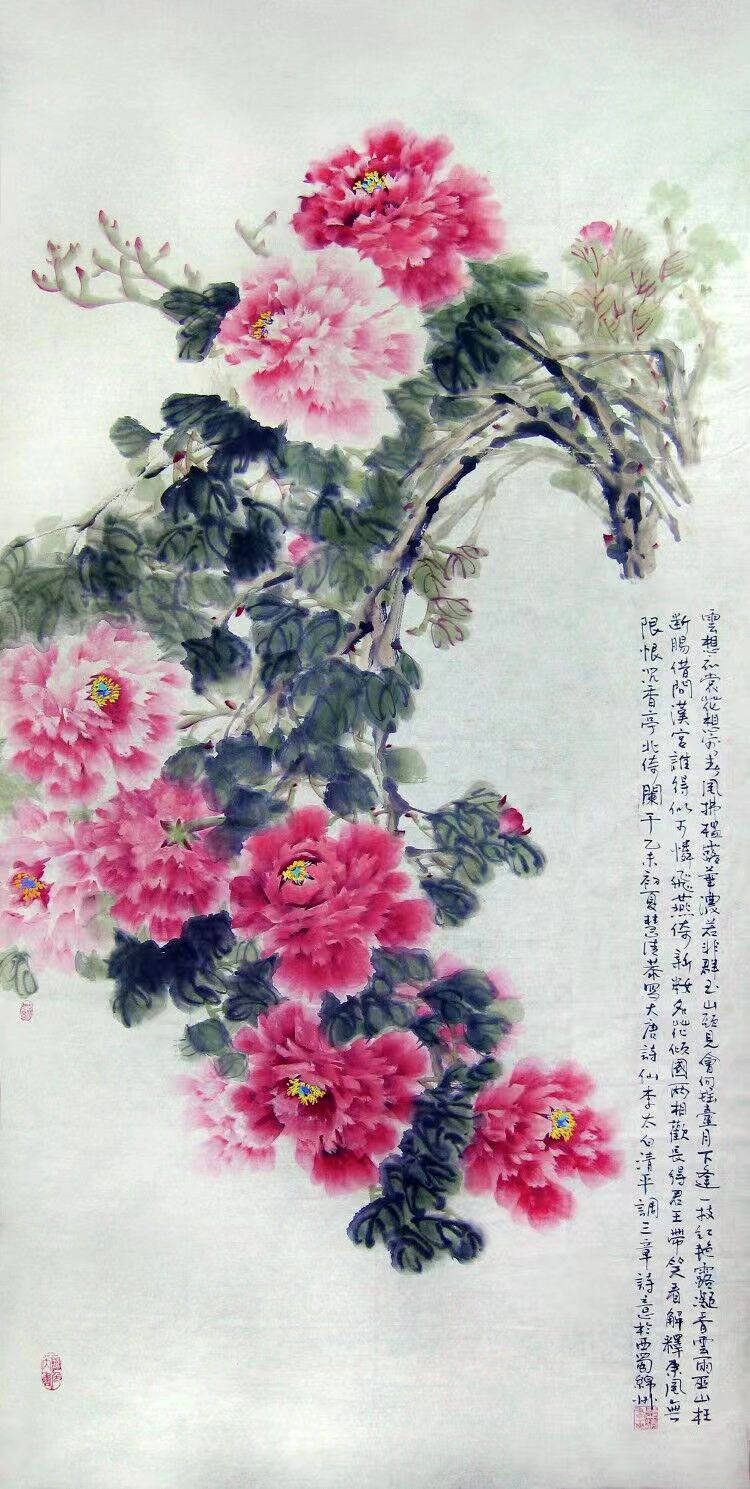 雲想衣裳花想容春風拂檻露華濃若非群玉山頭見會向瑤臺月下逢一枝紅艷露凝香雲雨巫山枉
断腸借問漢宮誰得似可憐飛燕倚新妝名花傾國兩相歡長得君王帶笑看解釋東風無
限恨沉香亭北倚闌干乙未初夏慧清恭寫大唐詩仙李太白清平調三章詩意於西蜀綿州